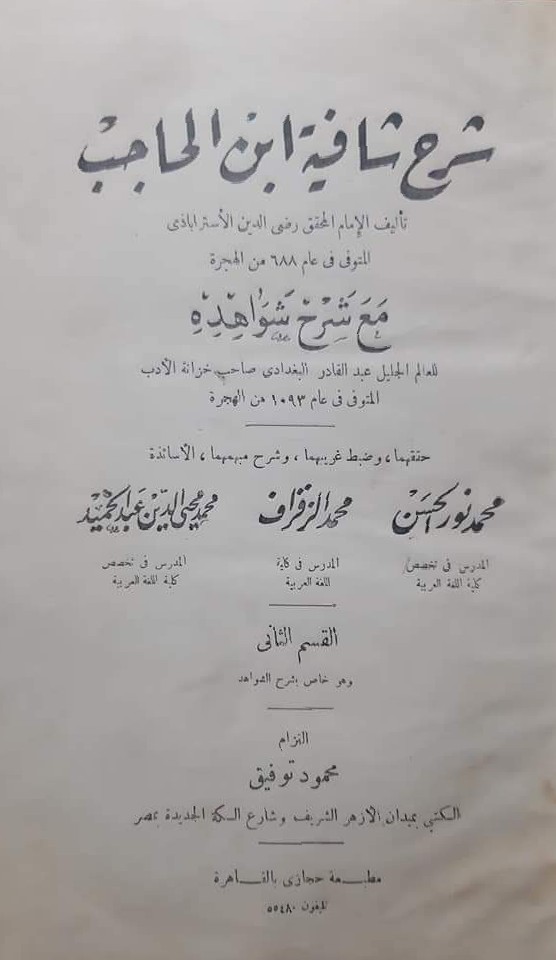 شرح شافية ابن الحاجب
تأليف الإمام المحقق رضى الدين الأستراباذى
المتوفى فى عام ٦٨٨ من الهجرة
مَعَ شَرْح شَوَاهِدِهِ
للعالم الجليل عبد القادر البغدادي صاحب خزانة الأدب
المتوفى فى عام ١٠٩٣ من الهجرة
حققهما، وضبط غريبهما، وشرح مبهمهما، الأساتذة
محمد نور الحسن محمد الزفزاف محمد محيى الدين عبد الحميد
المدرس فى تخصص المدرس فى كلية المدرس فى تخصص
كلية اللغة العربية اللغة العربية كلية اللغة العربية
القسم الثانى
وهو خاص بشرح الشواهد
التزام
محمود توفيق
الكتبي بميدان الازهر الشريف وشارع السكة الجديدة بمصر
مطبعة حجازى بالقاهرة
تليفون ٥٥٤٨٠